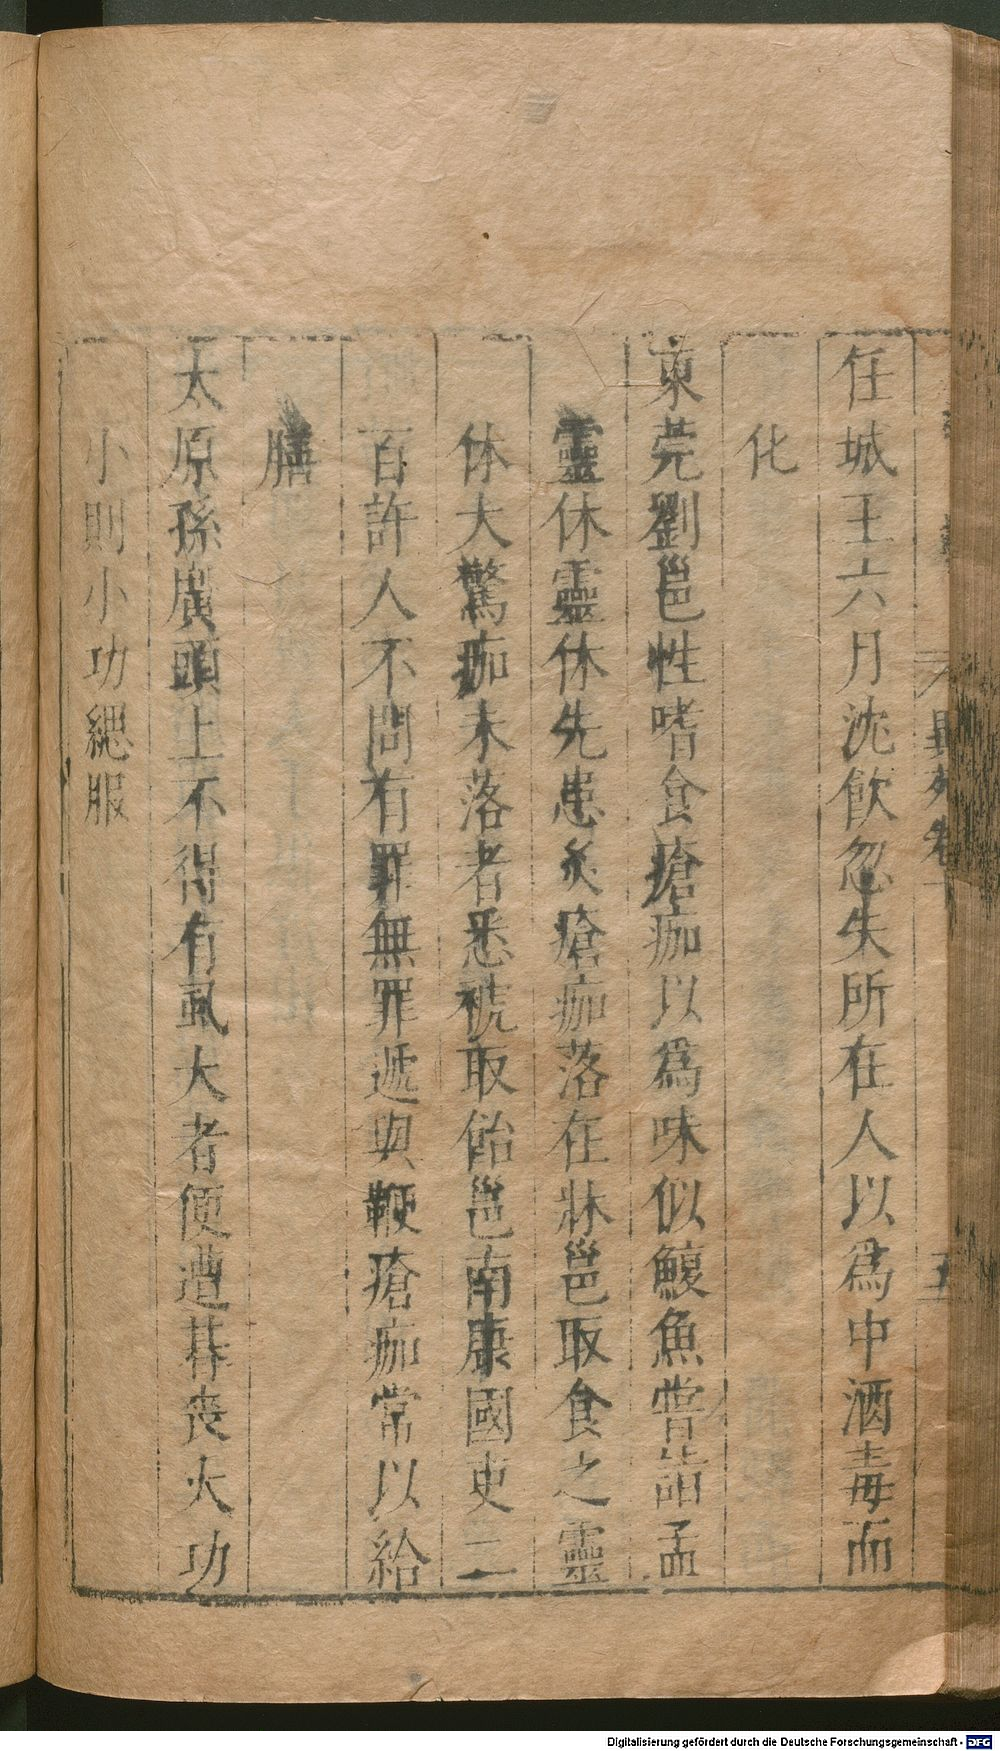 任城王六月沈飲忽失所在人以爲中酒毒而
化
東莞劉邕性嗜食瘡痂以爲味似鰒魚嘗詣孟
靈休靈休先患炙瘡痂落在牀邕取食之靈
休大驚痂未落者悉褫取飴邕南康國吏二
百許人不問有罪無罪遞與鞭瘡痂常以給
膳
太原孫廣頭上不得有虱大者便遭朞喪大功
小則小功緦服
Digitalisierung gefördert durch die Deutsche Forschungsgemeinschaft - DFG